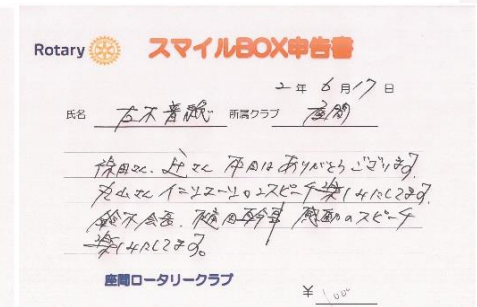 Rotary スマイルBOX申告書
2年 6月17日
氏名 所属クラブ 座間
さん、辻さん 本日はありがとうございます。
丸山さん イニシエーションスピーチ楽しみにしてます。
鈴木会長、幹事 感動のスピーチ
楽しみにしてます。
座間ロータリークラブ
¥ 1,000